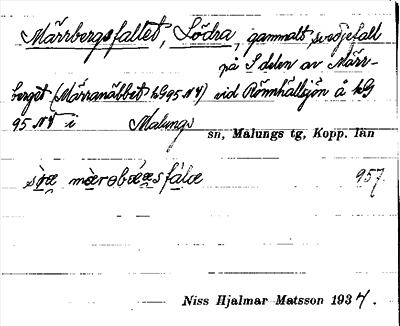 Märrbergsfallet, Södra, gammalt svedjefall
på S delen av Märr-
berget (Märranäbbet kG95 NV) vid Rönnhällsjön å kG
95 NV i Malungs
sn, Malungs tg, Kopp. län
957.
Niss Hjalmar Matsson 1934.